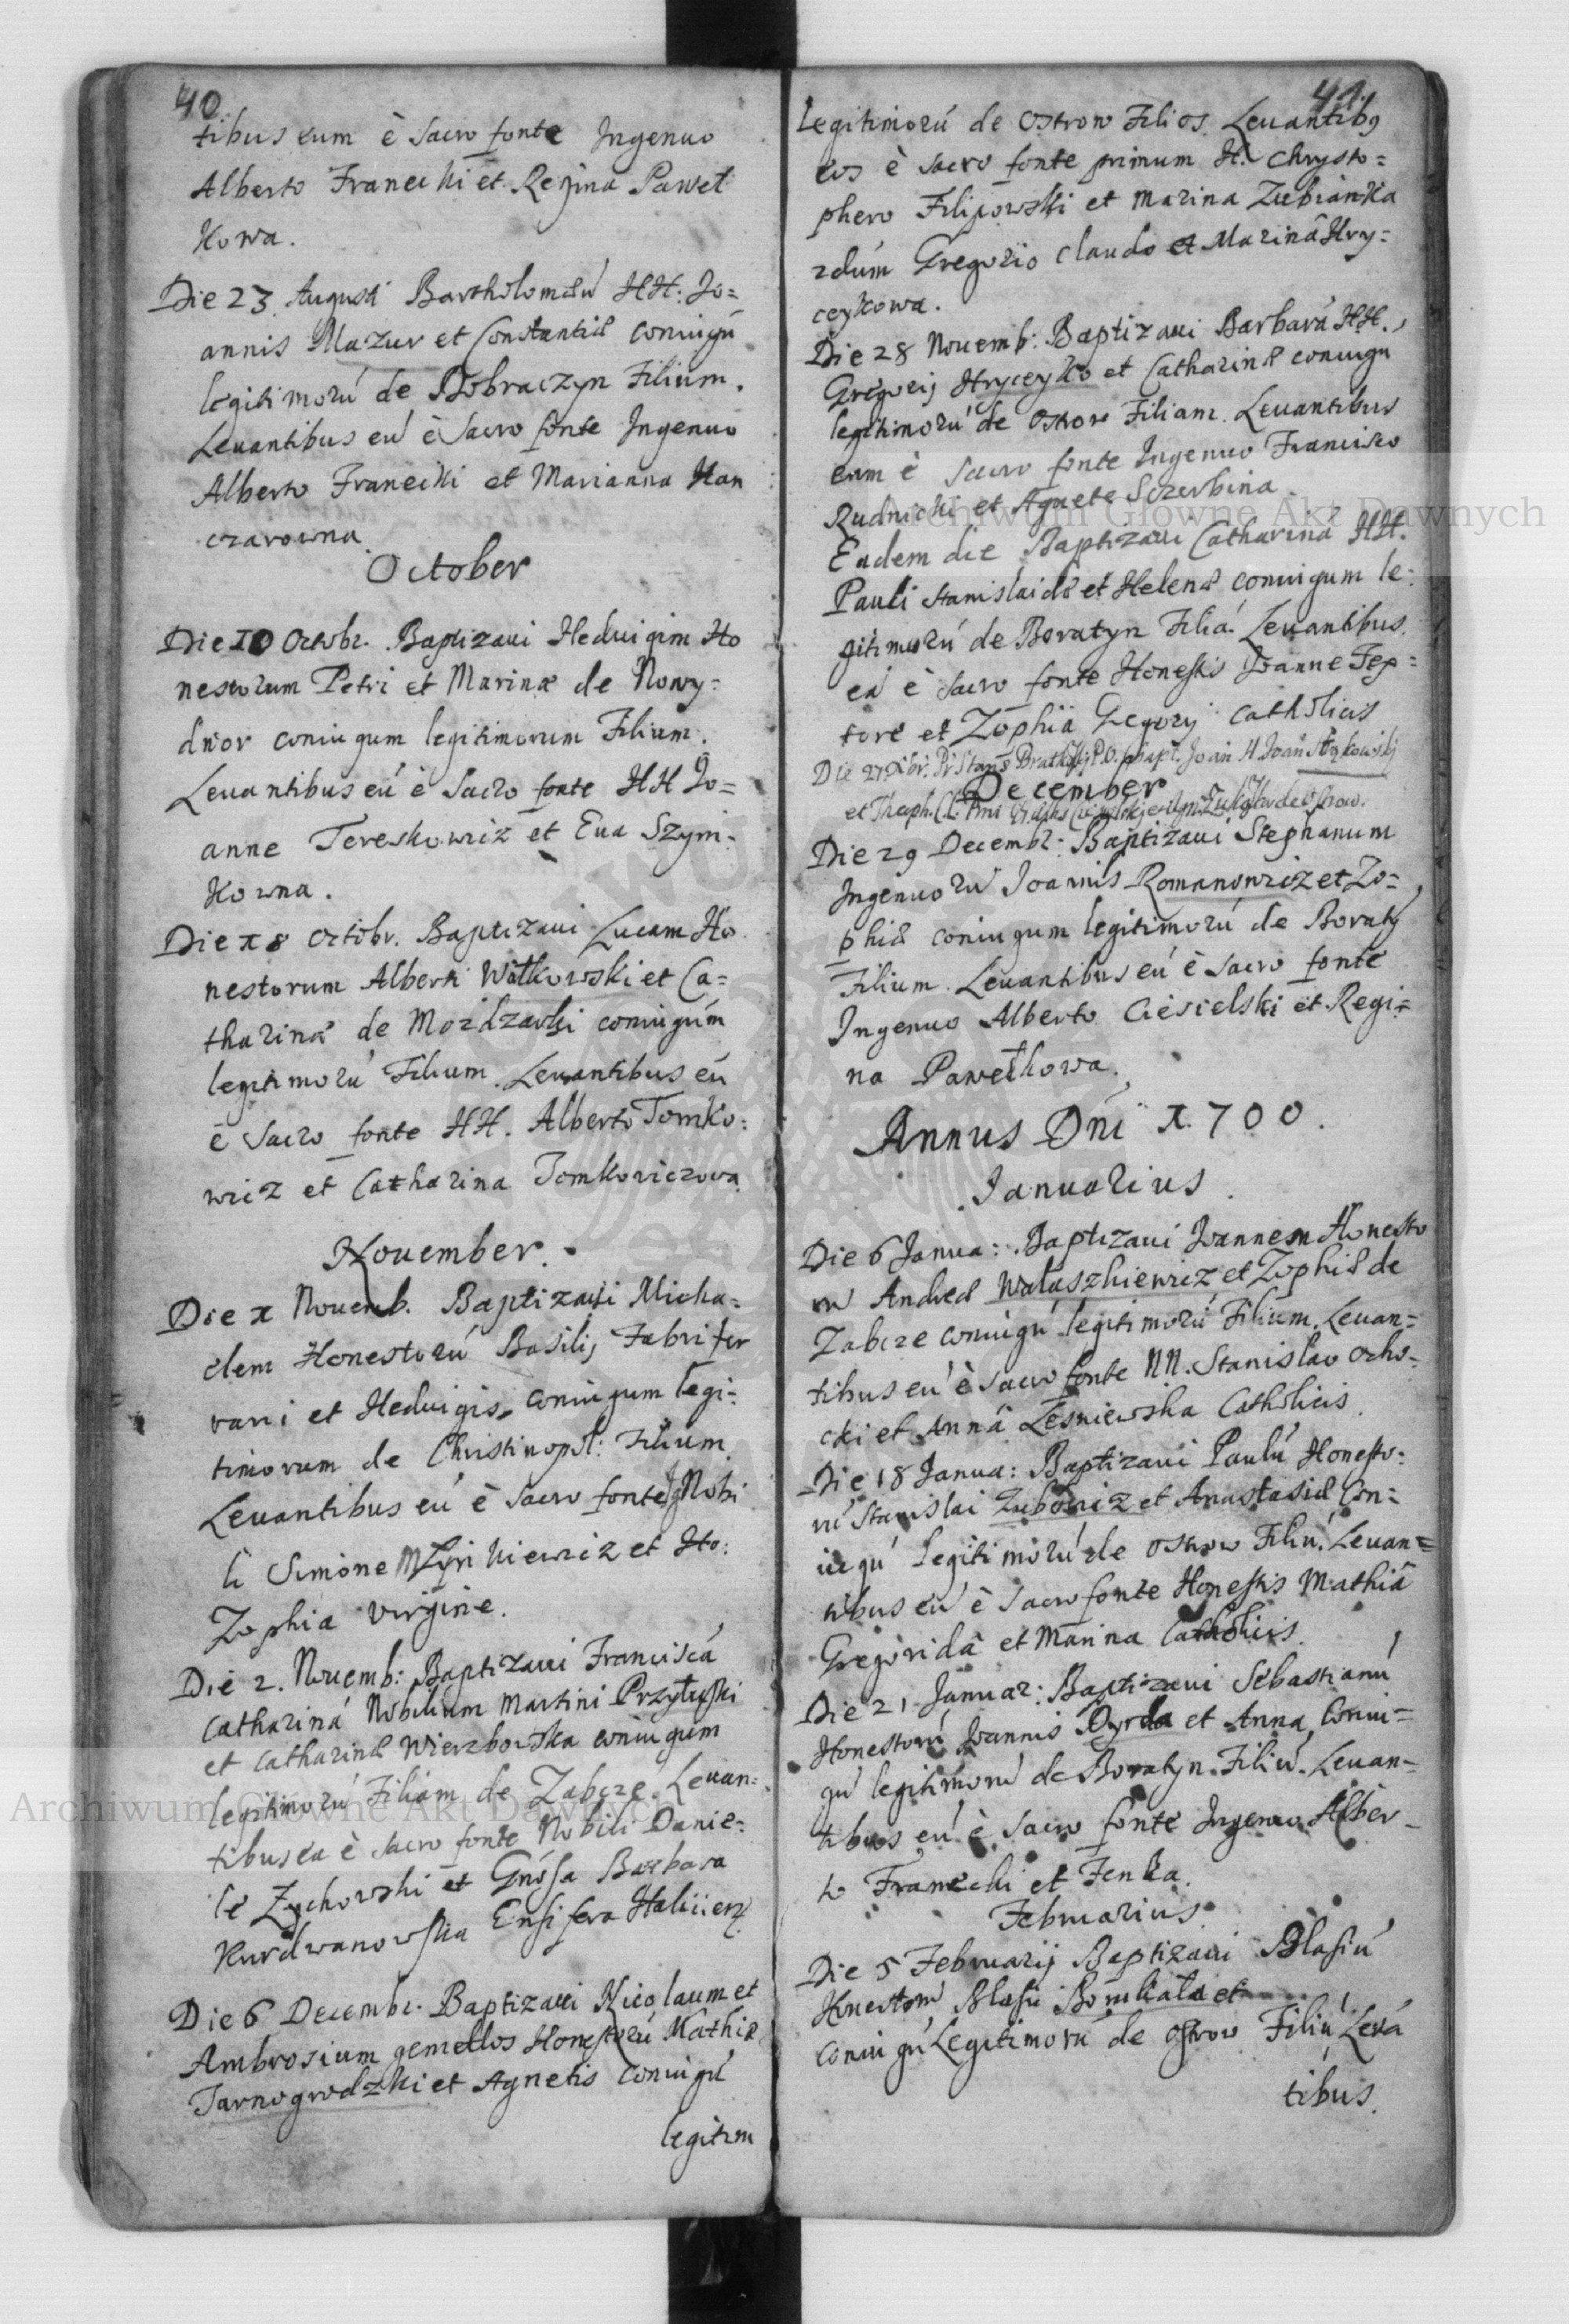 40
tibus eum è Sacro fonte Ingenuo
Alberto Franecki et Regina Paweł
Kowa.
Die 23 Augusti Bartholomæū HH: Jo=
annis Mazur et Constantiæ coniugū
legitimorú de Dobraczyn Filium.
Leuantibus eú è Sacro fonte Ingenuo
Alberto Franecki et Marianna Han
czarowna.
October
Die 10 Octobr. Baptizaui Heduigim Ho
nestorum Petri et Marinæ de Nowy=
dwor coniugum legitimorum Filium.
Leuantibus eú è Sacro fonte HH Jo=
anne Tereskowicz et Eua Szym=
Kowna.
Die 18 Octobr. Baptizaui Lucam Ho
nestorum Alberti Witkowski et Ca=
tharinæ de coniugúm
legitimorú Filium. Leuantibus eú
è Sacro fonte HH. Alberto Tomko=
wicz et Catharina Tomkowiczowa
Nouember.
Die 1 Nouemb. Baptizaui Micha=
elem Honestorú Basilij Fabri fer
rarii et Heduigis coniugum legi=
timorum de Christinopol: Filium
Leuantibus eú è Sacro fonte Nobi
li Simone et Ho:
Zophia virgine.
Die 2. Nouemb: Baptizaui Franciscá
Catharinâ Nobilium Martini Przyłuski
et Catharinæ Wierzbowska coniugum
legitimorú Filiam de Zabcze. Leuan=
tibus ea è sacro fonte Nobili Danie=
le Zychowski et Gnosa Barbara
Kurdwanowska Ensifera Halicien:
Die 6 Decembr. Baptizaui Nicolaum et
Ambrosium gemellos Honestorú Mathiæ
Tarnogrodzki et Agnetis coniugú
legitim
41.
Legitimorú de Ostrow Filios. Leuantibꝯ
eos è sacro fonte primum H. Chrysto=
phero Filipowski et Marina Zubianka
2dúm Gregorio Claudo et Marinâ Hry=
ceykowa.
Die 28 Nouemb: Baptizaui Barbarâ HH.
Gregorij Hryceyko et Catharinæ coniugu
legitimorú de Ostrow Filiam. Leuantibus
eam è sacro fonte Ingenuo Francisco
Rudnicki et Agnete Sczerbina
Eadem die Baptizaui Catharinâ HH.
Pauli Stanislaidæ et Helenæ coniugum le=
gitimorú de Boratyn Filiá. Leuantibus
eá è sacro fonte Honestis Joanne Tex=
tore et Zophiâ Gregorij Catholicis
Die 27 Xbr.
December
et Theoph. de Ostrow.
Die 29 Decembr: Baptizaui Stephanum
Ingenuorú Joannis Romanowicz et Zo=
phiæ coniugum legitimorú de Boratý
Filium. Leuantibus eú è sacro fonte
Ingenuo Alberto Ciesielski et Regi=
na Pawełkowa.
Annus Dńi 1.700.
Januarius.
Die 6 Janua: Baptizaui Joannem Honesto
rú Andreæ Wałaszkiewicz et Zophiæ de
Zabcze coniugú legitimorú Filium. Leuan=
tibus eú è sacro fonte NN. Stanislao Ocho=
cki et Annâ Lesniewska Catholicis.
Die 18 Janua: Baptizaui Paulú Honesto=
rú Stanislai Zubowicz et Anastasiæ Con=
iugú legitimorú de Ostrow Filiú. Leuan=
tibus eú è sacro fonte Honestis Mathiâ
Gregoridâ et Marina Catholicis.
Die 21 Januar: Baptizaui Sebastianú
Honestorú Joannis Dyrda et Anna Coniu=
gú legitimorú de Boratyn Filiú. Leuan=
tibus eú è sacro fonte Ingenuo Alber=
to Franecki et Fenka.
Februarius
Die 5 Februarij Baptizaui Blasiú
Honestorú Blasii et
coniugú Legitimorú de Ostrow Filiú Leuá
tibus.
Archiwum Główne Akt Dawnych
Archiwum Główne Akt Dawnych